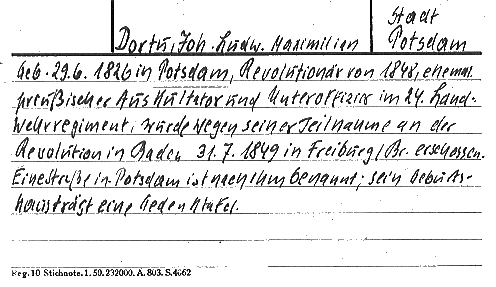 Stadt
Dortu, Joh. Ludw. Maximilian Potsdam
Geb. 29.6. 1826 in Potsdam, Revolutionär von 1848, ehemal.
preußischer Auskultator und Unteroffizier im 24. Land-
wehrregiment, wurde wegen seiner Teilnahme an der
Revolution in Baden 31.7. 1849 in Freiburg/Br. erschossen.
Eine Straße in Potsdam ist nach ihm benannt; sein Geburts-
haus trägt eine Gedenktafel.
Reg. 10 Stichnote. 1. 50. 232000. A. 803. S. 4662